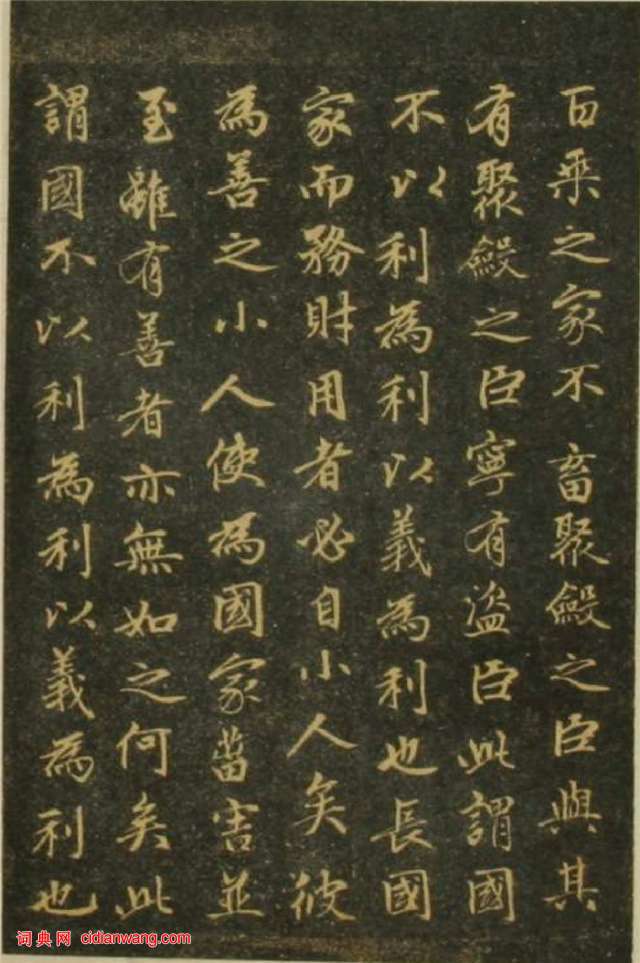 百乘之家不畜聚斂之臣與其
有聚斂之臣寧有盜臣此謂國
不以利為利以義為利也長國
家而務財用者必自小人矣彼
為善之小人使為國家菑害並
至雖有善者亦無如之何矣此
謂國不以利為利以義為利也
词典网 cidianwang.com